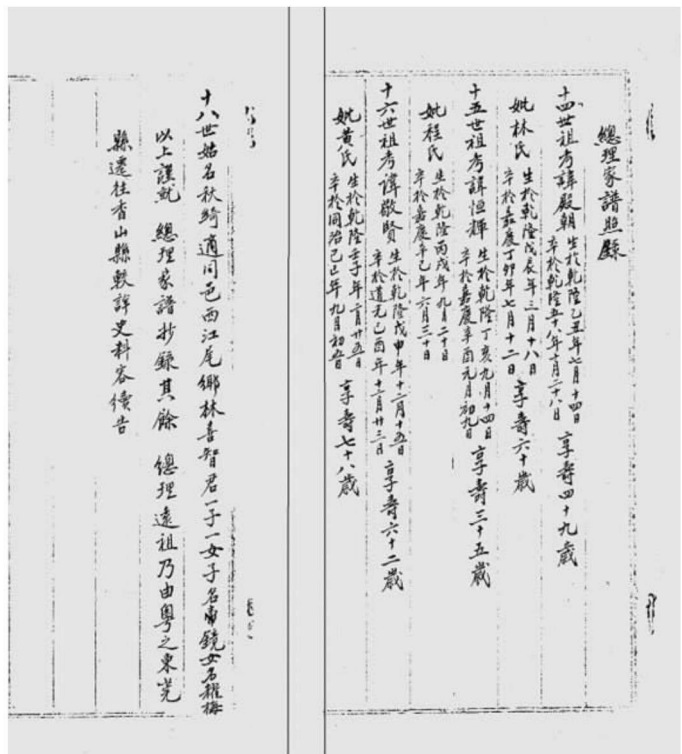 總理家譜照錄
十四世祖考諱殿朝 生於乾隆乙丑年七月十四日 卒於乾隆五十八年十月二十八日 享壽四十九歲
妣林氏 生於乾隆戊辰年三月十八日 卒於嘉慶丁卯年七月十二日 享壽六十歲
十五世祖考諱恒輝 生於乾隆丁亥九月十四日 卒於嘉慶辛酉元月初九日 享壽三十五歲
妣程氏 生於乾隆丙戌年九月二十日 卒於嘉慶辛巳年六月三十日
十六世祖考諱敬賢 生於乾隆戊申年十二月十五日 卒於道光己酉年十二月廿三日 享壽六十二歲
妣黃氏 生於乾隆壬子年二月廿五日 卒於同治己巳年九月初五日 享壽七十八歲
十八世姑名秋綺適同邑西江尾鄉林喜智君一子一女子名帝鏡女名耀梅
以上謹就 總理家譜抄錄其餘 總理遠祖乃由粵之東莞
縣遷往香山縣軼譯史料容續告